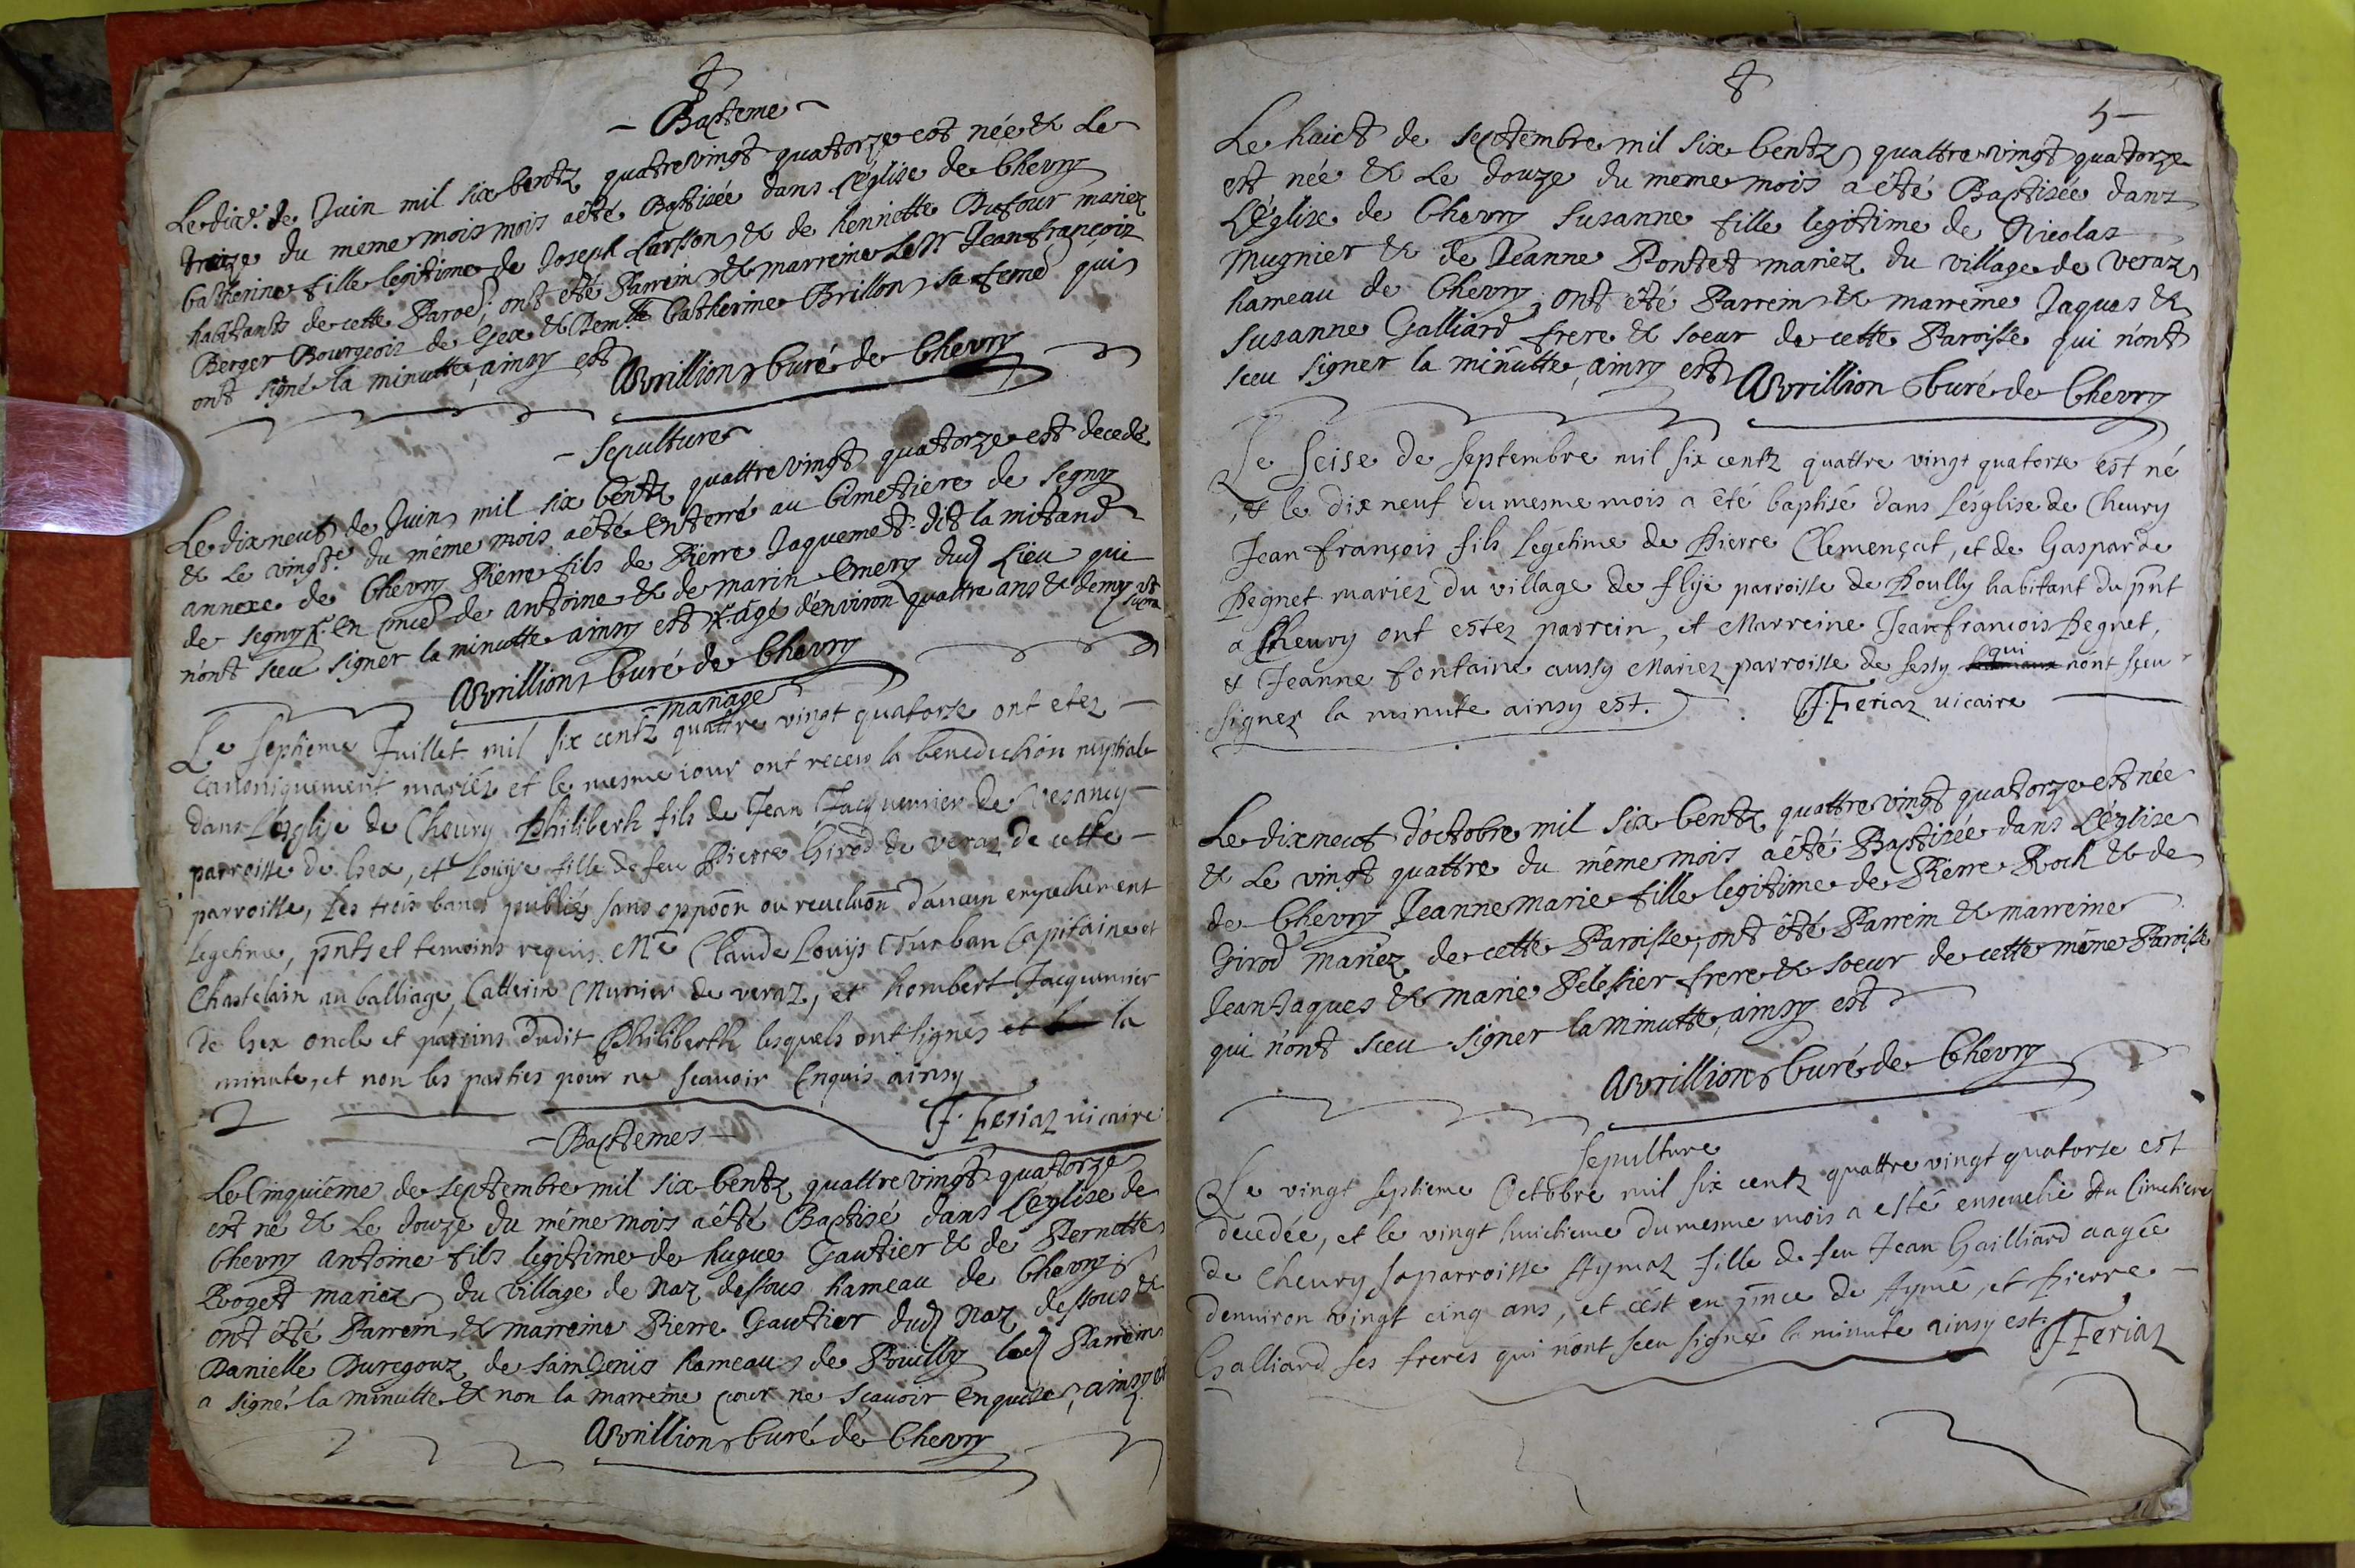 - Bapteme -
Le dixe. de Juin mil six Centz quatrevingt quatorze est née & Le
treize du meme mois mois a été Baptisée dans l'église de Chevry
Catherine fille legitime de Joseph & de henriette Dufour mariez
habitants de cette Paroe; ont été Parrein & marreine Le Sr Jean françois
Berger Bourgeois de Gex & Demlle Catherine Brillon sa feme qui
ont signé la minutte, ainsy est
Avrillion Curé de Chevry
- Sepulture
Le dixneuf de Juin mil six Centz quattrevingt quatorze est decedé
& Le vingte. du méme mois a été Enterré au Cimetiere de Segny
annexe de Chevry Pierre fils de Pierre Jaquemet dit la mitand
de Segny en de antoine & de marin Emery dud Lieu qui
n'ont sceu signer la minutte ainsy est agé d'environ quattre ans & demy
Avrillion Curé de Chevry
mariage
Le septieme Juillet mil six centz quattre vingt quatorse ont etez
Canoniquement mariéz et le mesme iour ont receu la benediction nuptiale
dans L'église de Cheury Philiberth fils de Jean Jacquemier de Vesancy
parroisse de Gex, et Louyse fille de feu Pierre Girod de veraz de cette
parroisse, Les trois bancs publiéz sans oppoôn ou reuelaôn d'aucun empechement
Legetime, pnts et temoins requis Me Claude Louijs Capitaine et
Chastelain au balliage, Catterin Munier de veraz, et humbert Jacquemier
de Gex oncle et parrins dudit Philiberth lesquels ont signés la
minute, et non les parties pour ne scauoir Enquis ainsy
F. Feriaz uicaire
- Baptemes -
Le Cinquiéme de septembre mil six Centz quattrevingt quatorze
est né & Le douze du méme mois a été Baptisé dans l'église de
Chevry antoine fils legitime de hugue Gautier & de Pernette
Roget mariez du village de Naz dessous hameau de Chevry
ont été Parrein & marreine Pierre Gautier dud Naz dessous &
Danielle de saint Denis hameau de Pouilly led Parrein
a signé la minutte & non la marreine pour ne sçavoir Enquise, ainsy est
Avrillion Curé de Chevry
5
Le huict de septembre mil six Centz quattrevingt quatorze
est née & Le douze du meme mois a été Baptisée dans
L'église de Chevry Susanne fille legitime de Nicolas
Mugnier & de Jeanne Pontet mariez du village de veraz
hameau de Chevry; ont été Parrein & marreine Jaques &
Susanne Galliard frere & soeur de cette Paroisse qui n'ont
sceu signer la minutte, ainsy est Avrillion Curé de Chevry
Le seise de septembre mil six centz quattre vingt quatorse est né
& le dix neuf du mesme mois a été baptisé dans L'esglise de Cheury
Jean françois fils Legetime de Pierre Clemençat, et de Gasparde
Pegnet mariez du village de flije parroisse de Poully habitant du pnt
a Cheury ont estez parrein, et Marreine Jean francois Pegnet,
& Jeanne fontaine aussy Mariez parroisse de sessy qui n'ont sçeu
signer la minute ainsy est. F. Feriaz uicaire
Le dixneuf d'octobre mil six Centz quattrevingt quatorze est née
& Le vingt quattre du méme mois a été Baptisée dans L'église
de Chevry Jeannemarie fille legitime de Pierre Roch & de
Girod mariez de cette Paroisse; ont été Parrein & marreine
Jean Jaques & marie Pelissier frere & soeur de cette méme Paroisse
qui n'ont sceu signer la minutte, ainsy est
Avrillion Curé de Chevry
Sepulture
Le vingt septieme Octobre mil six centz quattre vingt quatorse est
decedée, et le vingt huictieme du mesme mois a esté enseuelie Au Cimetiere
de Cheury sa parroisse Aymaz fille de feu Jean Gailliard aagée
denuiron vingt cinq ans, et c'est en pnce de Aymé, et Pierre
Galliard ses freres qui n'ont sceu signer la minute ainsy est.
F Feriaz